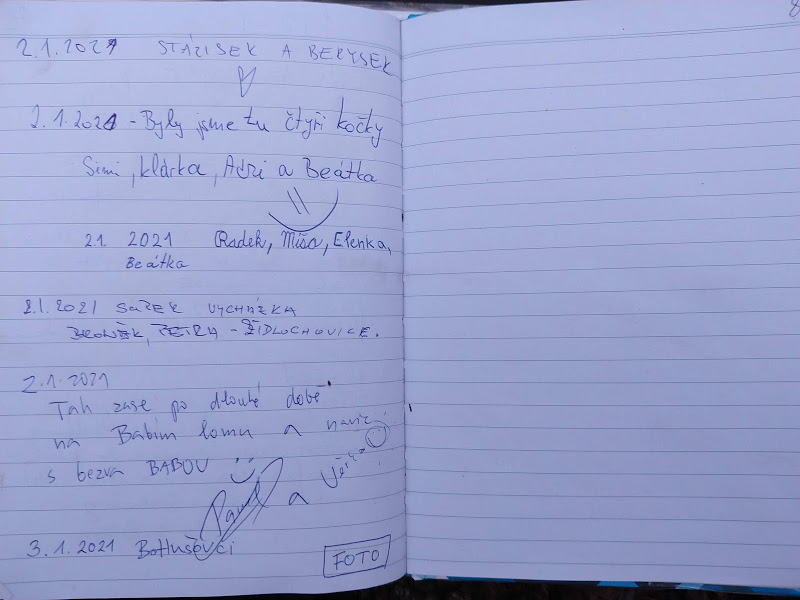 2.1.2021 STÁZISEK A BERYSEK
2.1.2021 - Byly jsme tu čtyři kočky
Simi, Klárka,Ádzi a Beátka
2.1. 2021 Radek, Míša, Elenka,
Beátka
2.1.2021 VYCHÁZKA
BRONĚK, PETRA - ŽIDLOCHOVICE.
2.1.2021
Tak zase po dlouhé době
na Babím lomu a navíc
s bezva BABOU
Pavel a Věrka
3.1.2021 Bohušovci
FOTO